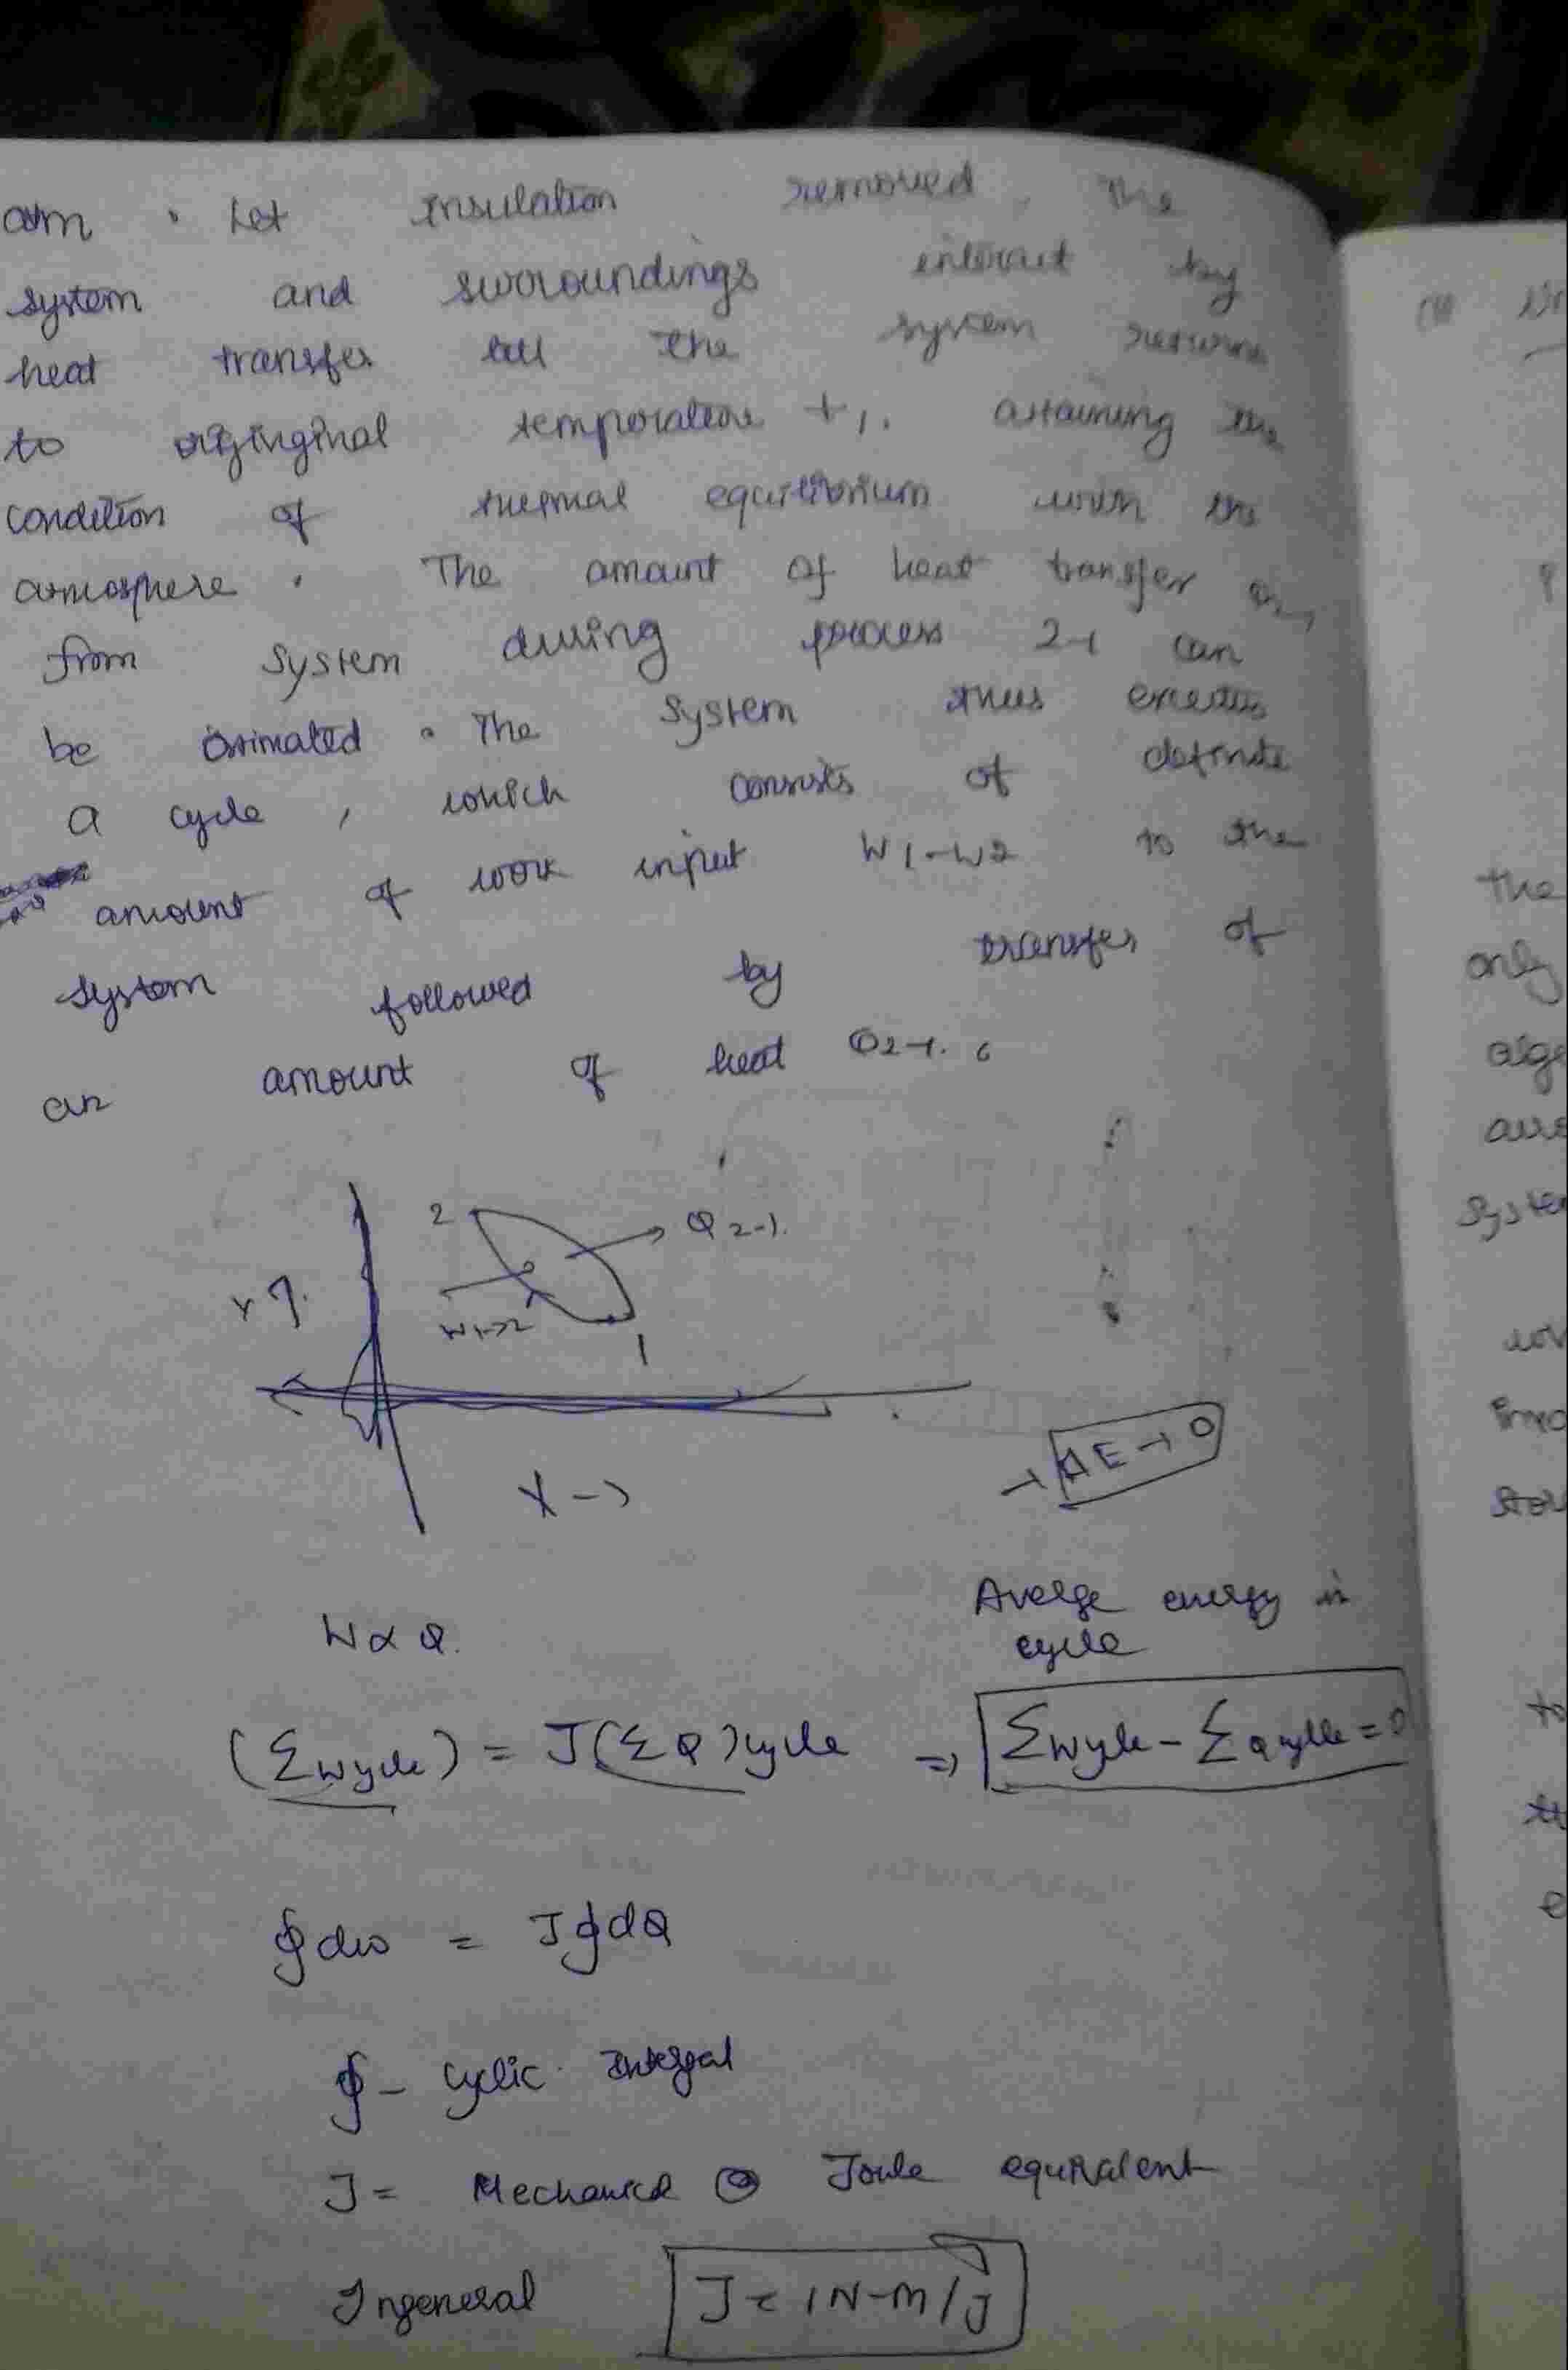 atm . Let insulation removed, the
system and surroundings interact by
heat transfer till the system returns
to origiginal temperature t1. attaining the
condition of thermal equilibrium with the
atmosphere . The amount of heat transfer
from system during process 2-1 can
be estimated . The system thus executes
a cycle , which consists of definite
amount of work input W1-W2 to the
system followed by transfer of
an amount of heat Q2-1.
2
Q 2-1.
Y
W1->2
1
X ->
→ ΔE → 0
Averge energy in
cycle
W α Q.
(Σ Wcycle) = J(Σ Q)cycle => ΣWcycle - ΣQ cycle = 0
∮ dw = J∮dQ
∮ - Cyclic Integral
J = Mechanical Joule equivalent
Ingeneral J = 1 N-m/J
the
only
alge
are
syste
to